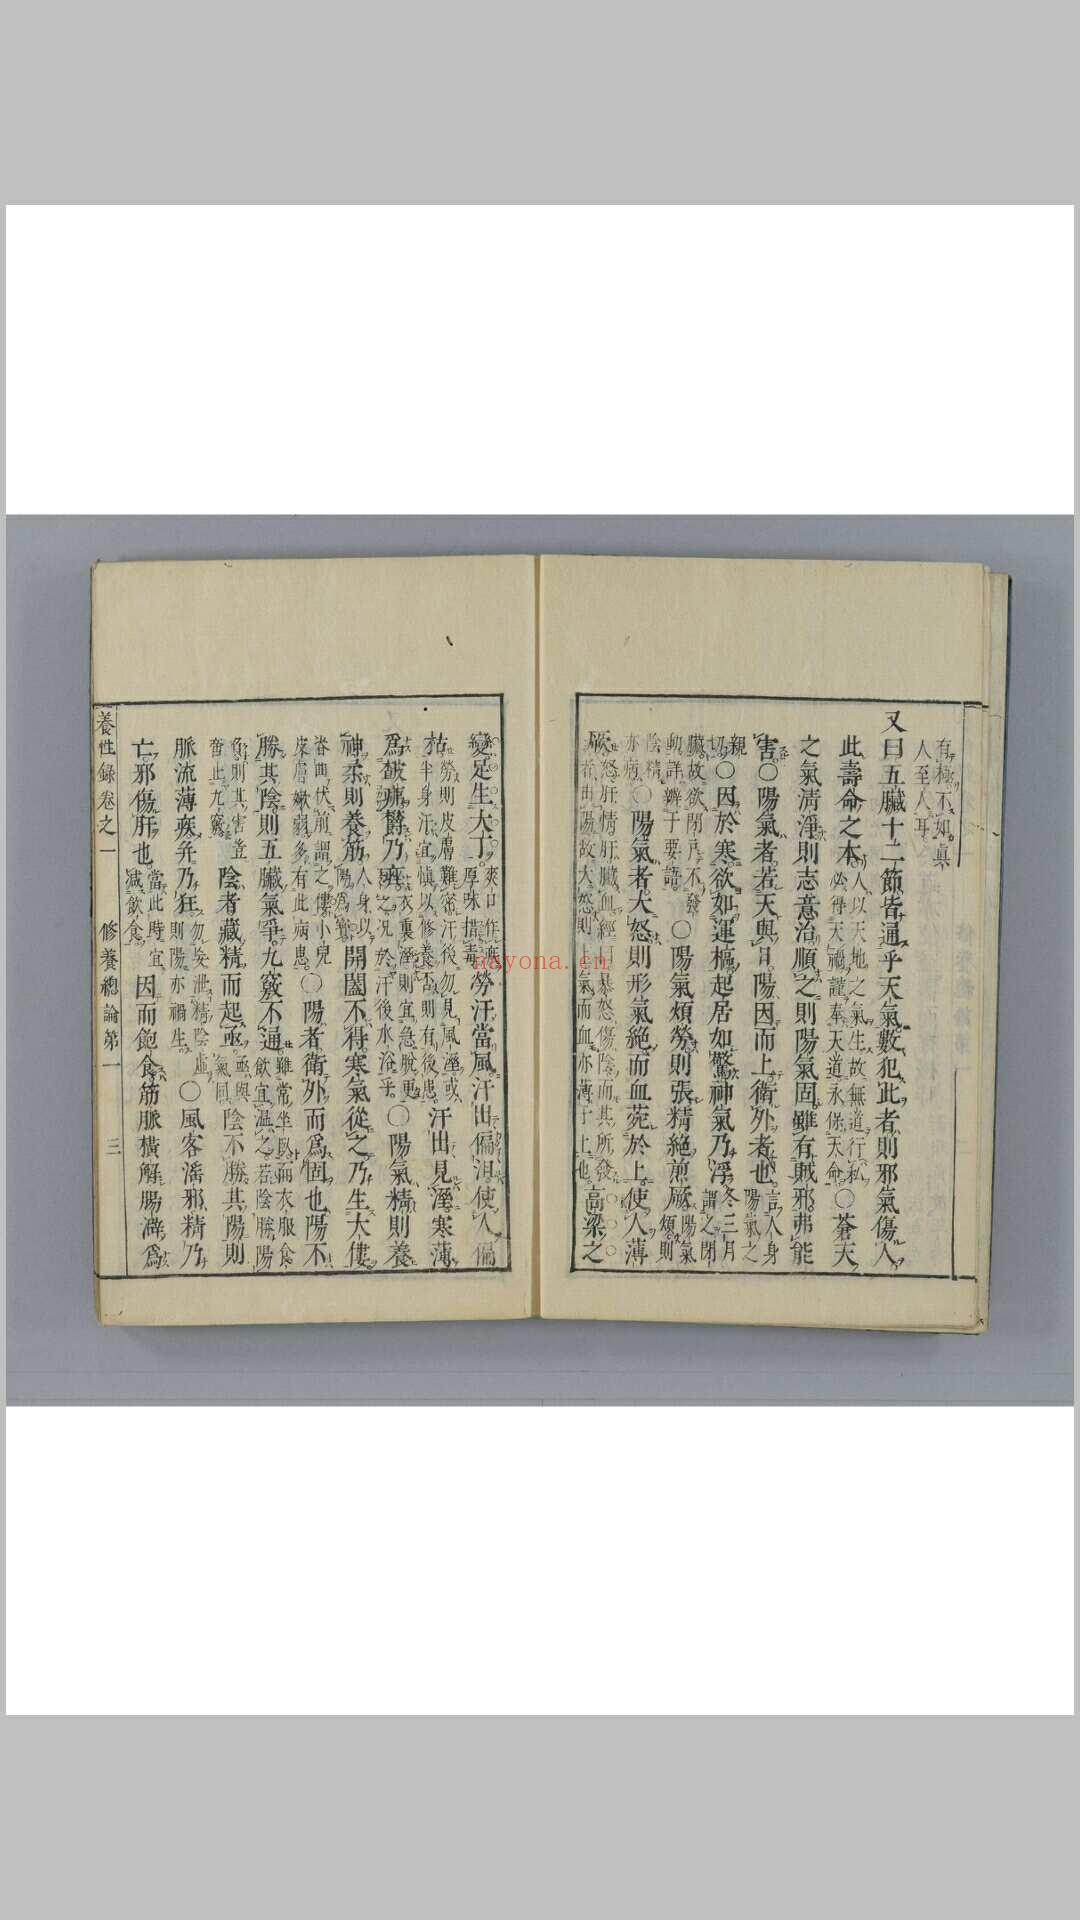 有極不如眞
人至人耳
又曰五臟十二節皆通乎天氣數犯此者則邪氣傷人
此壽命之本
人以天地之氣生故無道行私
必得天禍謹奉天道永保天命
○蒼天
之氣淸淨則志意治順之則陽氣固雖有賊邪弗能
害○陽氣者若天與日陽因而上衞外者也
言人身
陽氣之
親
切
○因於寒欲如運樞起居如驚神氣乃浮
冬三月
謂之閉
臟故欲閉戶不發
動詳辨于要語
○陽氣煩勞則張精絶煎厥
陽氣
煩則
陰精
亦病
○陽氣者大怒則形氣絶而血菀於上使人薄
厥
怒肝情肝臟血經曰暴怒傷陰而其所發
者由陽故大怒則上氣而血亦薄于上也
高粱之
變足生大丁
爽口作瘡
厚味措毒
勞汗當風汗出偏沮使人偏
枯
勞則皮膚難密汗後勿見風溼或
半身汗宜愼以修養否則有後患
汗出見溼寒薄
爲皶痱鬱乃痤
衣裏溼則宜急脫更
之况於汗後水浴乎
○陽氣精則養
神柔則養筋
人身以
陽爲寳
開闔不得寒氣從之乃生大僂
沓曲伏前謂之僂小兒
皮膚嫩弱多有此病患
○陽者衞外而爲固也陽不
勝其陰則五臟氣爭九竅不通
雖常坐臥而衣服食
飮宜温之若陰勝陽
負則其害豈
啻此九竅
陰者藏精而起亟
亟與
氣同
陰不勝其陽則
脈流薄疾弁乃狂
勿妄泄精陰虛
則陽亦禍生
○風客淫邪精乃
亡邪傷肝也
當此時宜
减飮食
因而飽食筋脈橫解腸澼爲
養性錄卷之一 修養總論第一 三
aayona.cn